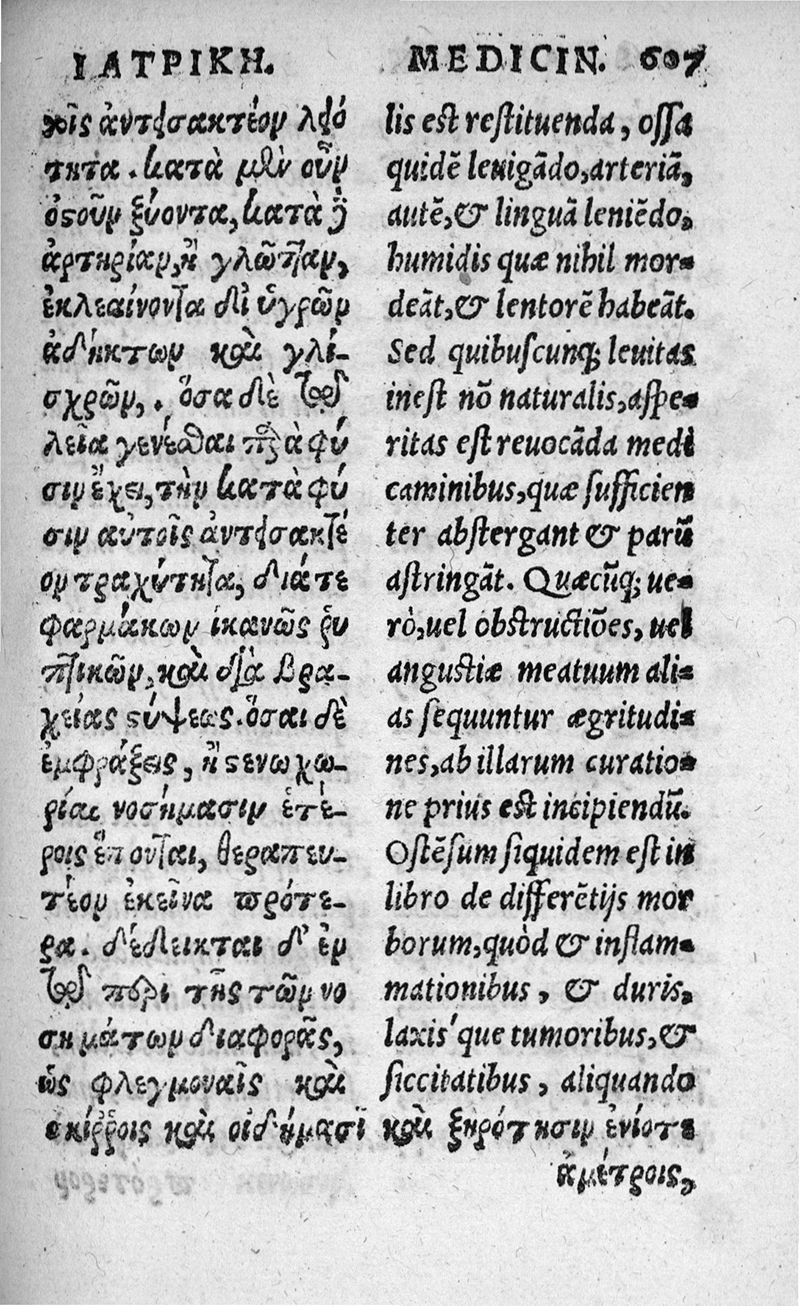 ΙΑΤΡΙΚΗ.
τοῖς ἀντεισακτέον λειό
τητα. κατὰ μὲν οὖν
ὀστοῦν ξύοντα, κατὰ δὲ
ἀρτηρίαν, ἢ γλῶτταν,
ἐκλεαίνοντα δι ὑγρῶν
ἀδήκτων καὶ γλί-
σχρῶν,. ὅσα δὲ τῷ
λεῖα γενέσθαι παρὰ φύ
σιν ἔχει, τὴν κατὰ φύ
σιν αὐτοῖς ἀντεισακτέ
ον τραχύτητα, διά τε
φαρμάκων ἱκανῶς ῥυ
πτικῶν, καὶ διὰ βρα-
χείας στύψεως. ὅσαι δὲ
ἐμφράξεις, ἢ στενωχω-
ρίαι νοσήμασιν ἑτέ-
ροις ἕπονται, θεραπευ-
τέον ἐκεῖνα πρότε-
ρα. δέδεικται δ' ἐν
τῷ περὶ τῆς τῶν νο
σημάτων διαφορᾶς,
ὡς φλεγμοναῖς καὶ
σκίῤῥοις καὶ οἰδήμασι καὶ ξηρότησιν ἐνίοτε
ἀμέτροις,
MEDICIN. 607
lis est restituenda, ossa
quidē leuigādo, arteriā,
autē, & linguā leniēdo,
humidis quæ nihil mor-
deāt, & lentorē habeāt.
Sed quibuscunq; leuitas
inest nō naturalis, aspe-
ritas est reuocāda medi
caminibus, quæ sufficien
ter abstergant & parū
astringāt. Quæcūq; ue-
rò, uel obstructiōes, uel
angustiæ meatuum ali-
as sequuntur ægritudi-
nes, ab illarum curatio-
ne prius est incipiendū.
Ostēsum siquidem est in
libro de differētijs mor
borum, quòd & inflam-
mationibus, & duris,
laxis'que tumoribus, &
siccitatibus, aliquando